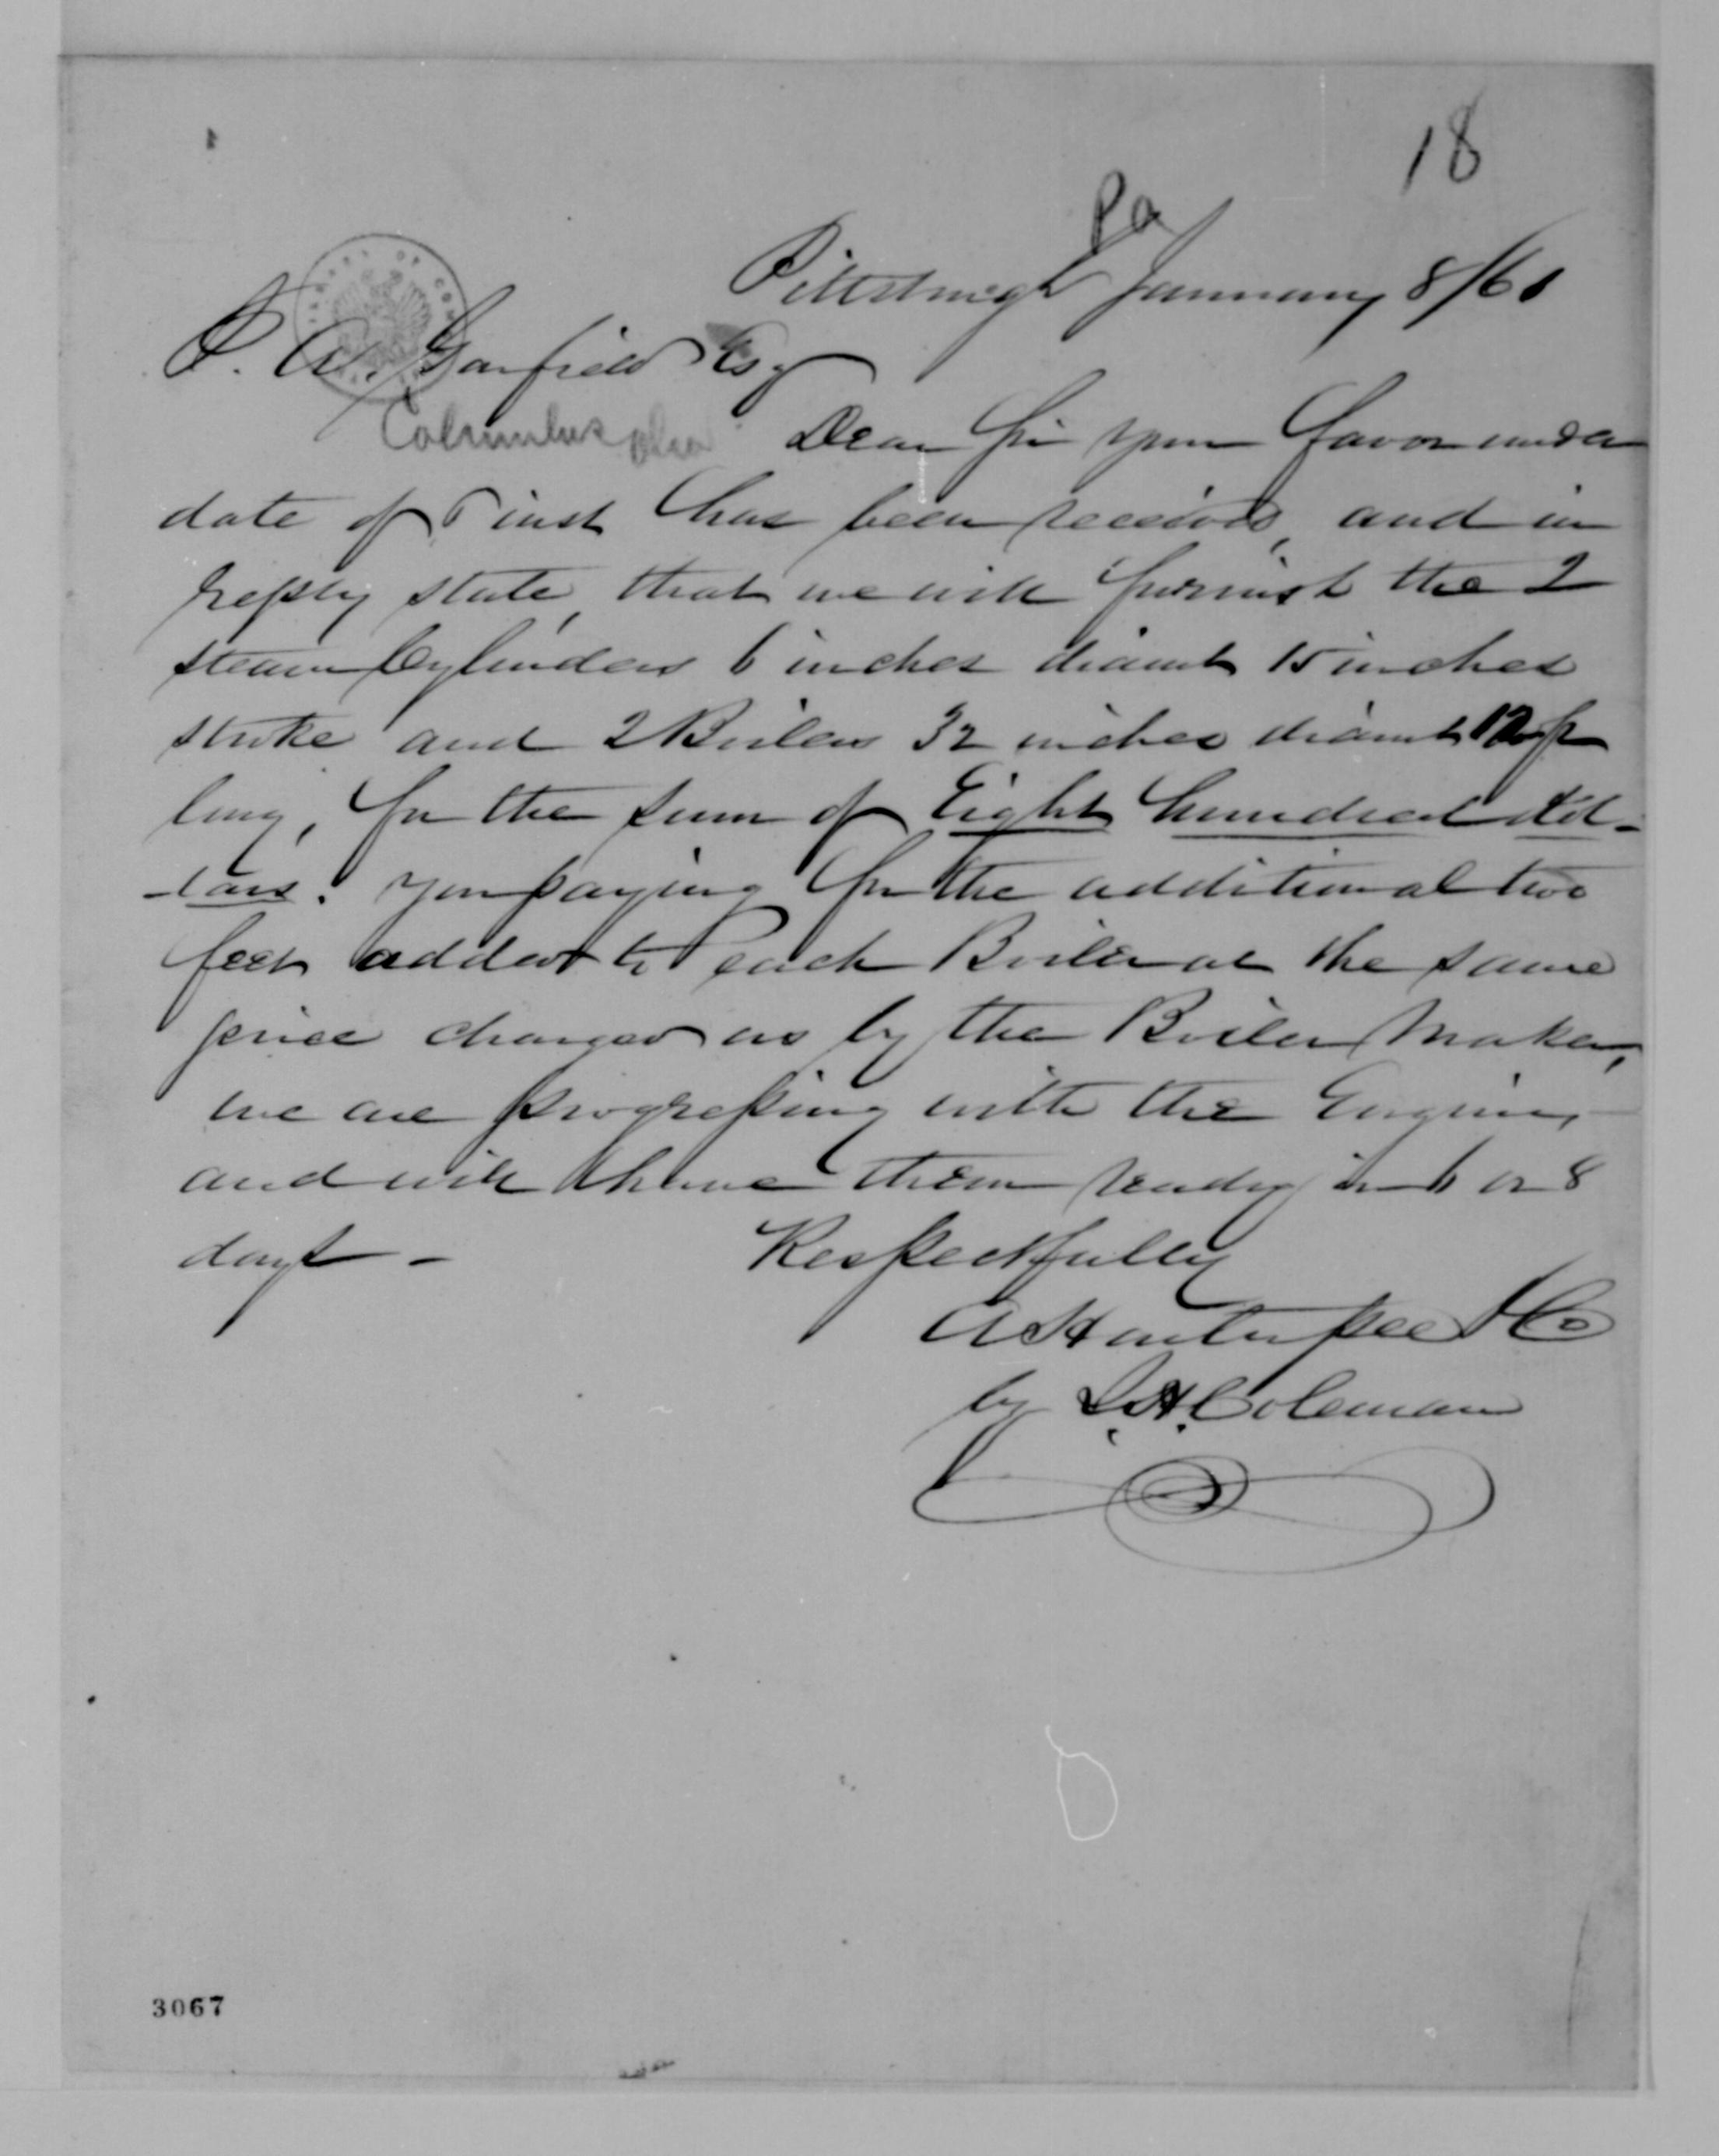 18
Pa
Pittsburgh January 8/61
J. A. Garfield Esq
Columbus Ohio Dear Sir your favor under
date of 5 inst has been received, and in
reply state, that we will furnish the 2
steam Cylinders 6 inches diamt 15 inches
stroke and 2 Boilers 32 inches diamt 12 ft
long, for the sum of Eight hundred dol-
-lars. you paying for the additional two
feet added to each Boiler at the same
price charged us by the Boiler Maker,
we are progressing with the Engines,
and will have them ready in 6 or 8
days - Respectfully
A Hartupee & Co
by J. H. Coleman
3067